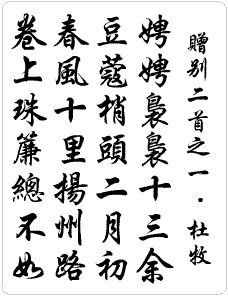 贈別二首之一·杜牧
娉娉裊裊十三余
豆蔻梢頭二月初
春風十里揚州路
卷上珠簾總不如